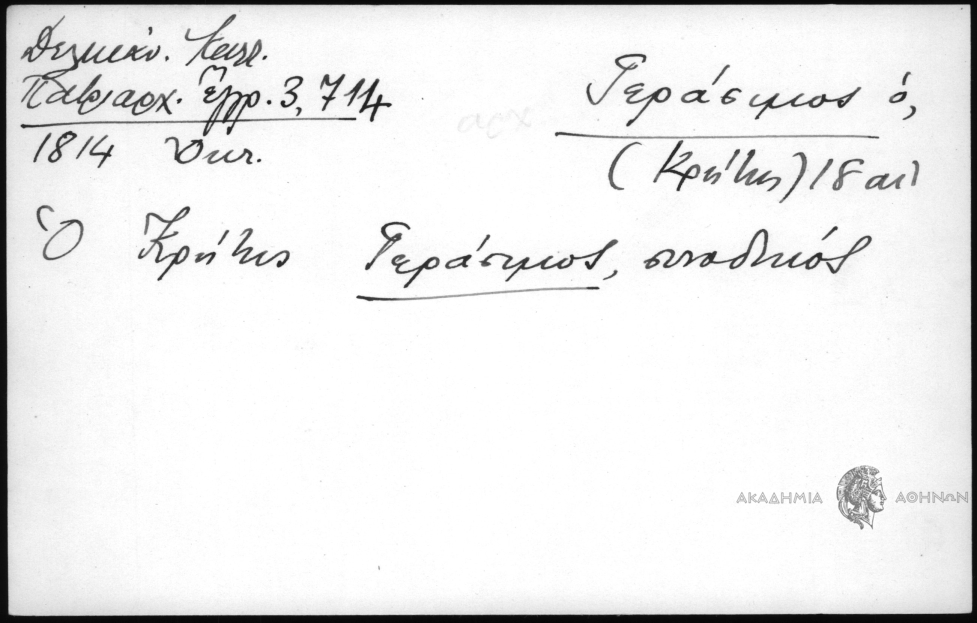 Δελικάν. Καλλ.
Πατριαρχ. Ἔγγρ. 3, 714
1814 Ὀκτ.
αρχ
Γεράσιμος ὁ,
(Κρήτης) 18 αἰ
Ὁ Κρήτης Γεράσιμος, συνοδικός
ΑΚΑΔΗΜΙΑ ΑΘΗΝΩΝ